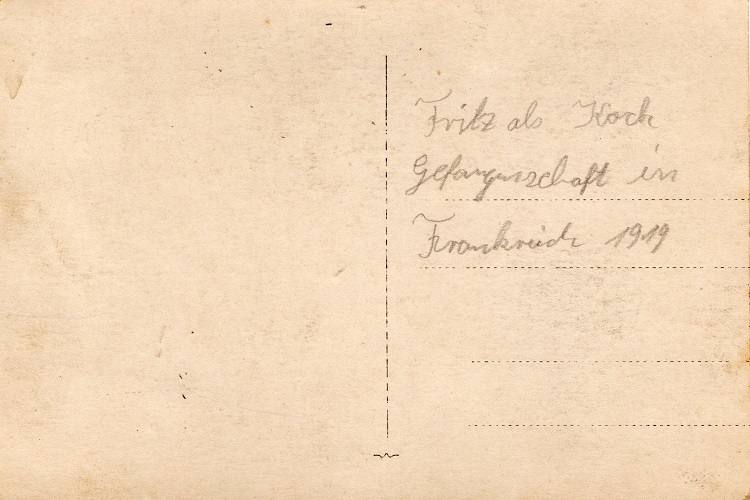 Fritz als Koch
Gefangenschaft in
Frankreich 1919